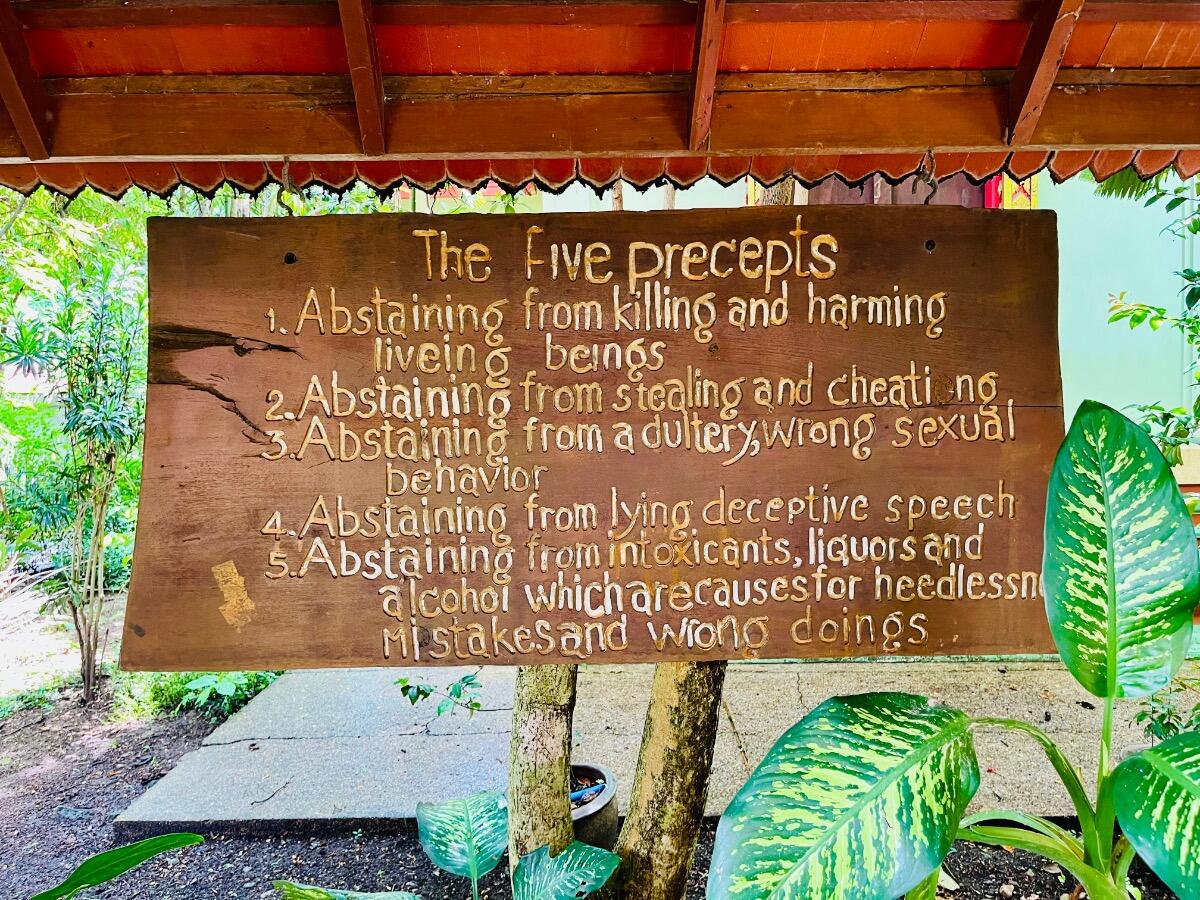 The Five precepts
1. Abstaining from killing and harming
liveing beings
2. Abstaining from stealing and cheating
3. Abstaining from adultery, wrong sexual
behavior
4. Abstaining from lying deceptive speech
5. Abstaining from intoxicants, liquors and
alcohol which are causes for heedlessn
Mistakes and wrong doings